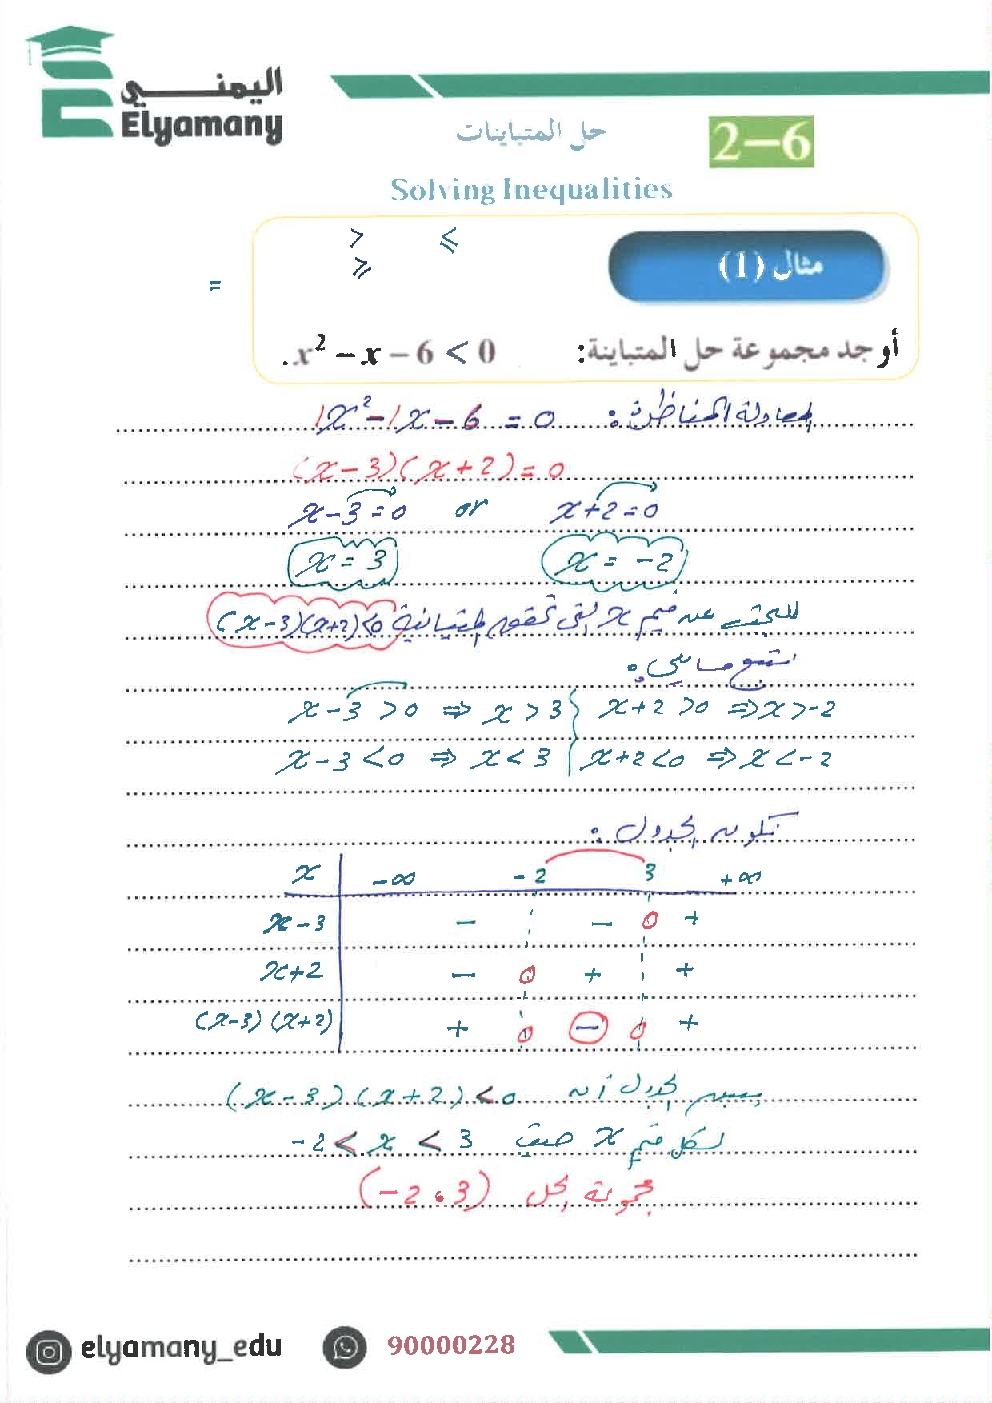 اليمني
Elyamany
حل المتباينات
2-6
Solving Inequalities
> ⩽
⩾
=
مثال (1)
أوجد مجموعة حل المتباينة: x² − x − 6 < 0.
المعادلة المناظرة: 1x² − 1x − 6 = 0
(x − 3)(x + 2) = 0
x − 3 = 0 or x + 2 = 0
x = 3 x = −2
للبحث عن قيم x التي تحقق المتباينة (x−3)(x+2)<0
نتبع ما يلي:
x − 3 > 0 ⇒ x > 3 } x + 2 > 0 ⇒ x > −2
x − 3 < 0 ⇒ x < 3 } x + 2 < 0 ⇒ x < −2
نكون الجدول:
x −∞ −2 3 +∞
x − 3 − − 0 +
x + 2 − 0 + +
(x−3)(x+2) + 0 − 0 +
يبين الجدول أن (x − 3)(x + 2) < 0
لكل قيم x حيث −2 < x < 3
مجموعة الحل (−2 ، 3)
elyamany_edu 90000228